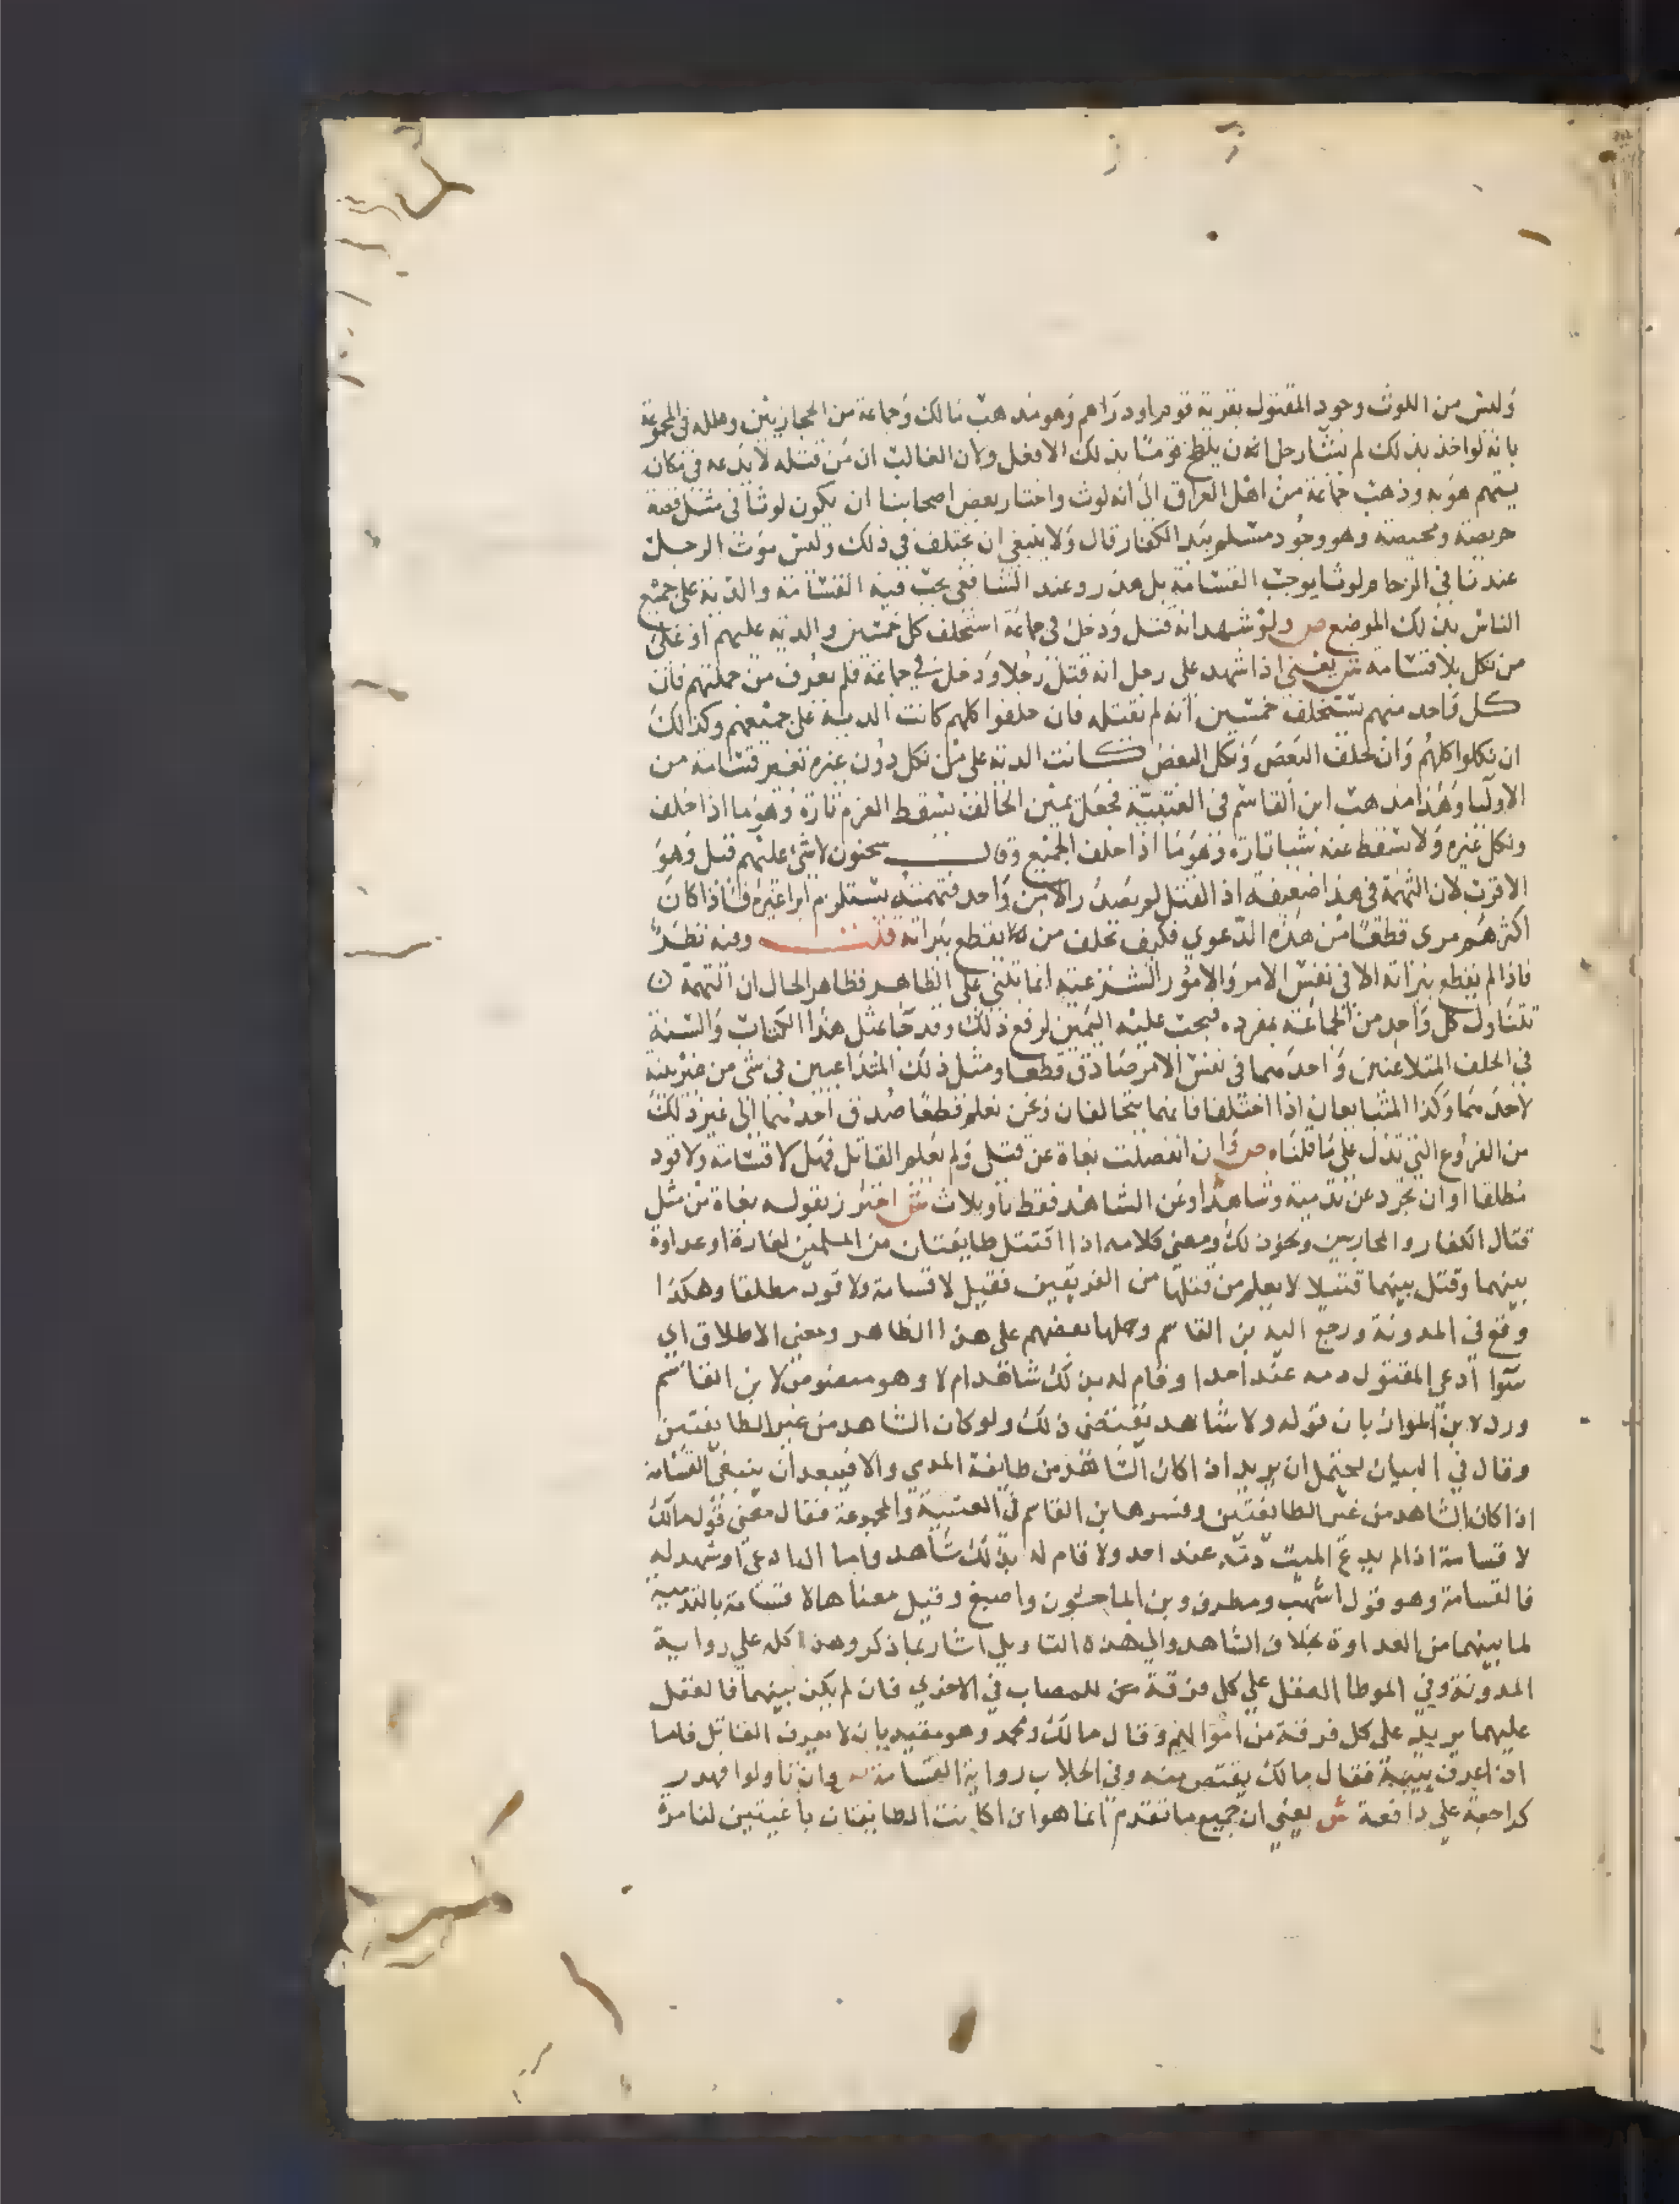 وليس من اللوث وجود المقتول بقرية قوم او دارهم وهو مذهب مالك وجماعة من الحجازيين وعلله في المجموعة
بانه لو اخذ بذلك لم يشا رجل ان يلطخ قوما بذلك الا فعل ولان الغالب ان من قتله لا يدعه في مكان
يتهم هو به وذهب جماعة من اهل العراق الى انه لوث واختار بعض اصحابنا ان يكون لوثا في مثل قصة
حويصة ومحيصة وهو وجود مسلم ببلد الكفار قال ولا ينبغي ان يختلف في ذلك وليس موت الرجل
عندنا في الزحام لوثا يوجب القسامة بل هدر وعند الشافعي يجب فيه القسامة والدية على جميع
الناس بذلك الموضع ص ولو شهد انه قتل ودخل في جماعة استحلف كل خمسين والدية عليهم او على
من نكل بلا قسامة ش يعني اذا شهد على رجل انه قتل رجلا ودخل في جماعة فلم يعرف من جملتهم فان
كل واحد منهم يستحلف خمسين انه لم يقتله فان حلفوا كلهم كانت الدية على جميعهم وكذلك
ان نكلوا كلهم وان حلف البعض ونكل البعض كانت الدية على من نكل دون غيره بغير قسامة من
الاوليا وهذا مذهب ابن القاسم في العتبية فجعل يمين الحالف تسقط الغرم تارة وهو ما اذا حلف
ونكل غيره ولا تسقط عنه شيا تارة وهو ما اذا حلف الجميع وقال سحنون لا شي عليهم قيل وهو
الاقرب لان التهمة في هذا ضعيفة اذ القتل لم يصدر الا من واحد فتهمته تستلزم ابرا غيره فاذا كان
اكثرهم برى قطعا من هذه الدعوي فكيف يحلف من يقطع ببراته قلت وفيه نظر
فاذا لم يقطع ببراته الا في نفس الامر والامور الشرعية انما تبتني على الظاهر فظاهر الحال ان التهمة
تتناول كل واحد من الجماعة بمفرده فيجب عليه اليمين لرفع ذلك وقد جا بمثل هذا الكتاب والسنة
في الحلف المتلاعنين واحدهما في نفس الامر صادق قطعا ومثل ذلك المتداعيين في شي من غير بينة
لاحدهما وكذا المتبايعان اذا اختلفا فانهما يتحالفان ونحن نعلم قطعا صدق احدهما الى غير ذلك
من الفروع التي تدل على ما قلناه ص وان انفصلت بغاة عن قتلى ولم يعلم القاتل فهل لا قسامة ولا قود
مطلقا او ان تجرد عن تدمية وشاهد او عن الشاهد فقط تاويلات ش احترز بقوله بغاة من مثل
قتال الكفار والمحاربين ونحو ذلك ومعنى كلامه اذا اقتتل طايفتان من المسلمين لغارة او عداوة
بينهما وقتل بينهما قتيلا لا يعلم من قتلها من الفريقين فقيل لا قسامة ولا قود مطلقا وهكذا
وقع في المدونة ورجع اليه بن القاسم وحملها بعضهم على هذا الظاهر ومعنى الاطلاق اي
سوا ادعى المقتول دمه عند احد او قام له بذلك شاهد ام لا وهو منصوص لابن القاسم
ورده بن المواز بان قوله ولا شاهد يقتضي ذلك ولو كان الشاهد من غير الطايفتين
وقال في البيان يحتمل ان يريد اذا كان الشاهد من طايفة المدمي والا فيبعد ان ينبغي القسامة
اذا كان الشاهد من غير الطايفتين وفسرها بن القاسم في العتبية والمجموعة فقال معنى قول مالك
لا قسامة اذا لم يدع الميت دمه عند احد ولا قام له بذلك شاهد واما اذا ادعى او شهد له
فالقسامة وهو قول اشهب ومطرف وبن الماجشون واصبغ وقيل معناها لا قسامة بالتدمية
لما بينهما من العداوة بخلاف الشاهد والى هذه التاويل اشار بما ذكر وهذا كله على رواية
المدونة وفي الموطا العقل على كل فرقة من المصاب في الاخري فان لم يكن بينهما فالعقل
عليهما يريد على كل فرقة من اموالهم وقال مالك ومحمد وهو مقيد بان لا يعرف القاتل فاما
اذا عرف ببينة فقال مالك يقتص منه وفي الجلاب رواية القسامة ص وان تاولوا فهدر
كزاحفة على دافعة ش يعني ان جميع ما تقدم انما هو ان اكانت الطايفتان باغيتين لنامرة